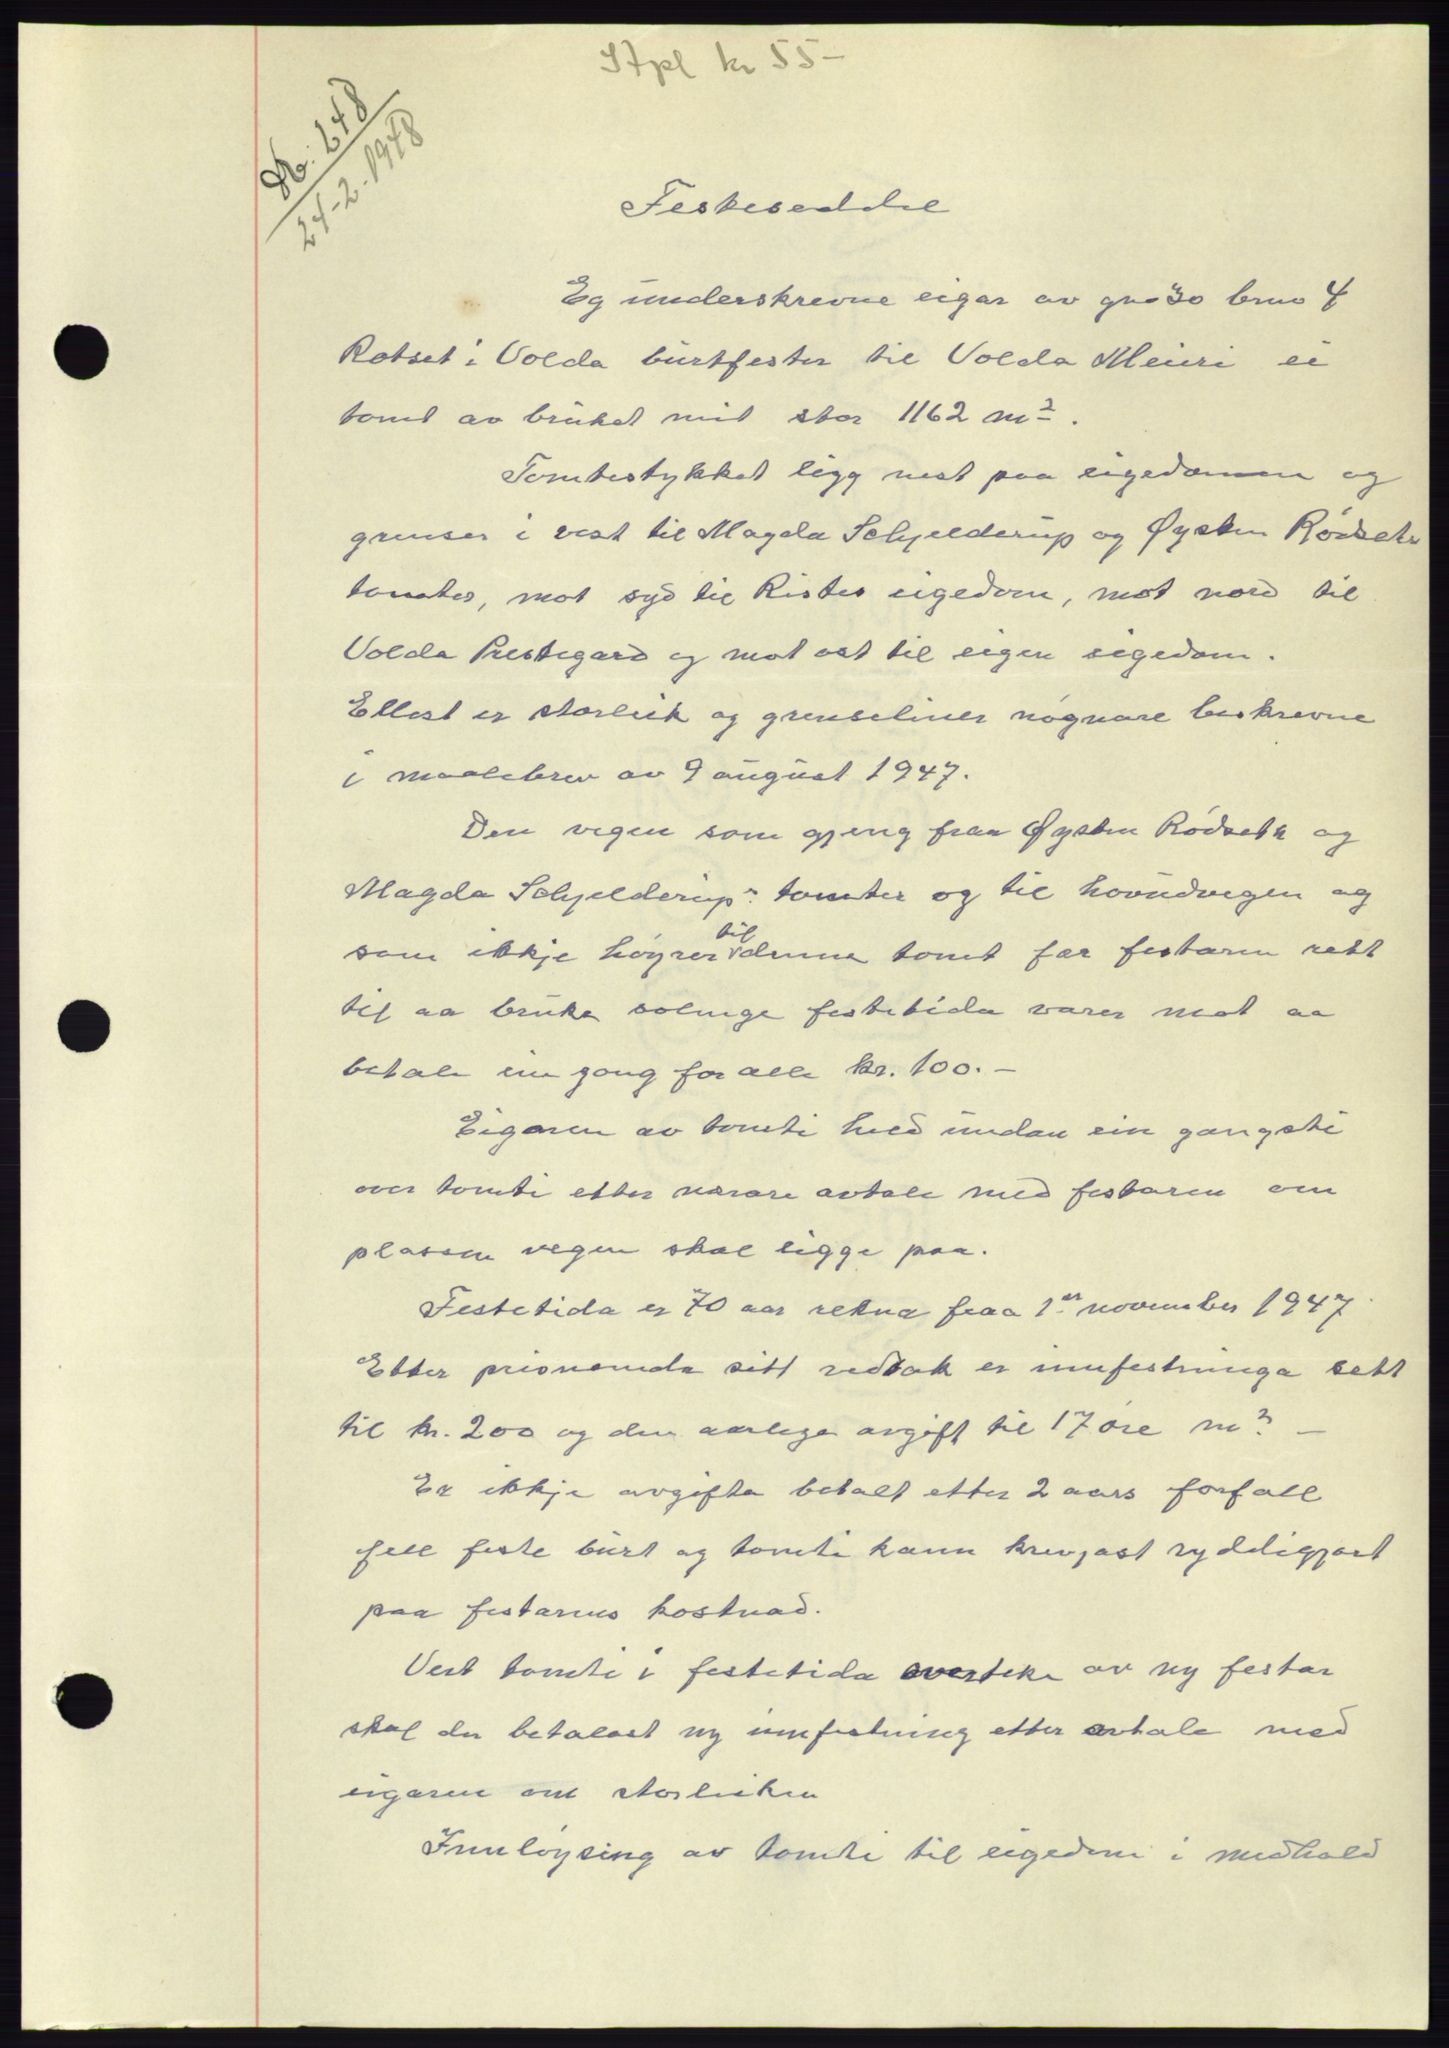 Stpl kr 55-
No: 248
24-2-1948
Festeseddel
Eg underskrevne eigar av gno 30 bruno 4
Rotset i Volda burtfester til Volda Meieri ei
tomt av bruket mit stor 1162 m².
Tomtestykket ligg nest paa eigedomen og
grenser i vest til Magda Schjelderup og Øystein Rødseth
tomter, mot syd til Ristes eigedom, mot nord til
Volda Prestegard og mot ost til eigen eigedom.
Ellest er storleik og grenseliner nógnare beskrevne
i maalebrev av 9 august 1947.
Den vegen som gjeng fraa Øystein Rødseth og
Magda Schjelderup's tomter og til hovudvegen og
som ikkje høyrer til denne tomt fær festaren rett
til aa bruka solenge festetida varer mot aa
betale ein gong for alle kr. 100.-
Eigaren av tomti held undan ein gangsti
over tomti etter nærare avtale med festaren om
plassen vegen skal ligge paa.
Festetida er 70 aar rekna fraa 1er november 1947
Etter prisnemda sitt vedtak er innfestninga sett
til kr. 200 og den aarlege avgift til 17 øre m² -
Er ikkje avgifta betalt etter 2 aars forfall
fell feste burt og tomti kann krevjast ryddigjort
paa festarens kostnad.
Vert tomti i festetida overteke av ny festar
skal der betalast ny innfestning etter avtale med
eigaren om storleiken
Innløysing av tomti til eigedom i medhald